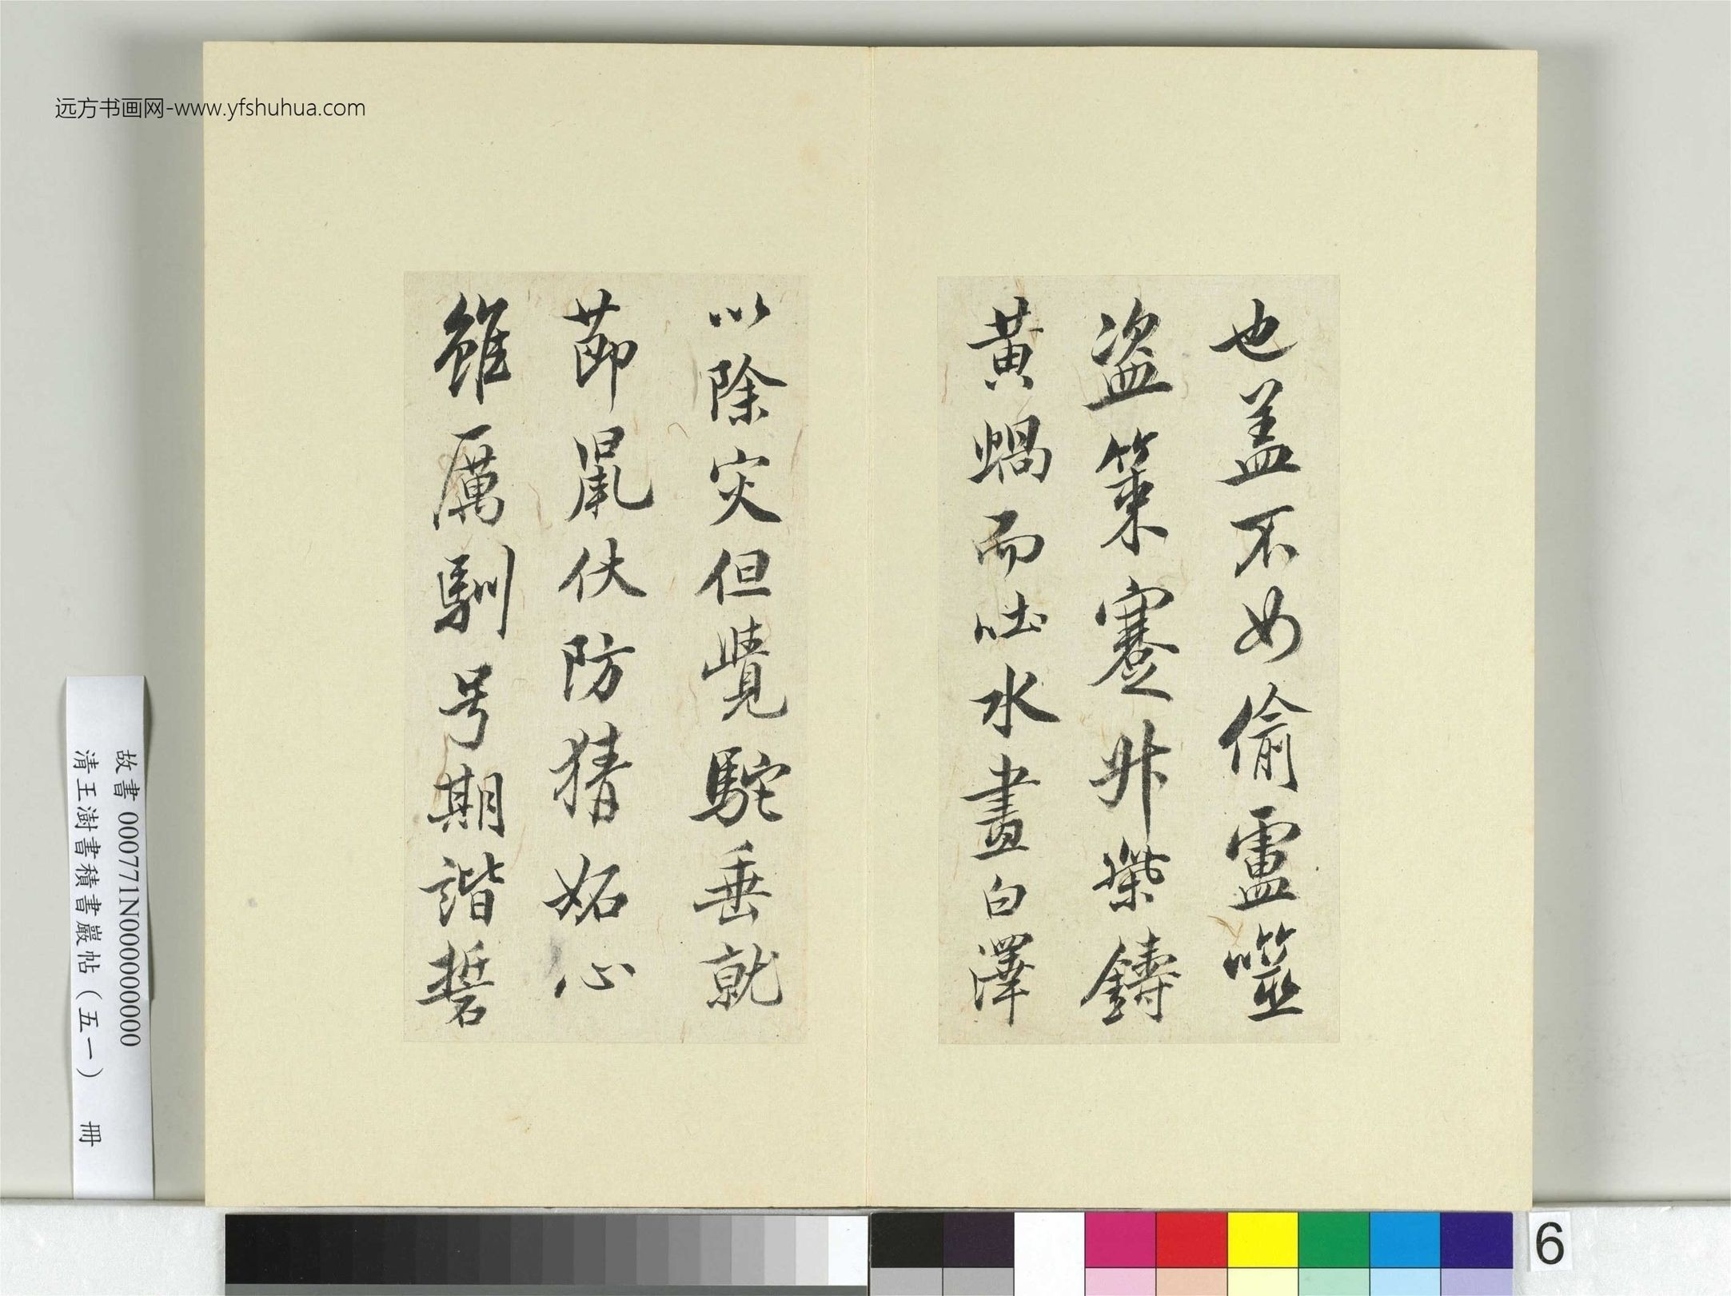 也盖不如偷盧噬
盗策蹇升鑄
黄蝸而吐水畫白澤
以除灾但覺駝垂就
莭鼠伏防猜妬心
雖厲馴号期諧誓
远方书画网-www.yfshuhua.com
故書 000771N000000000
清王澍書積書巖帖（五一） 冊
6